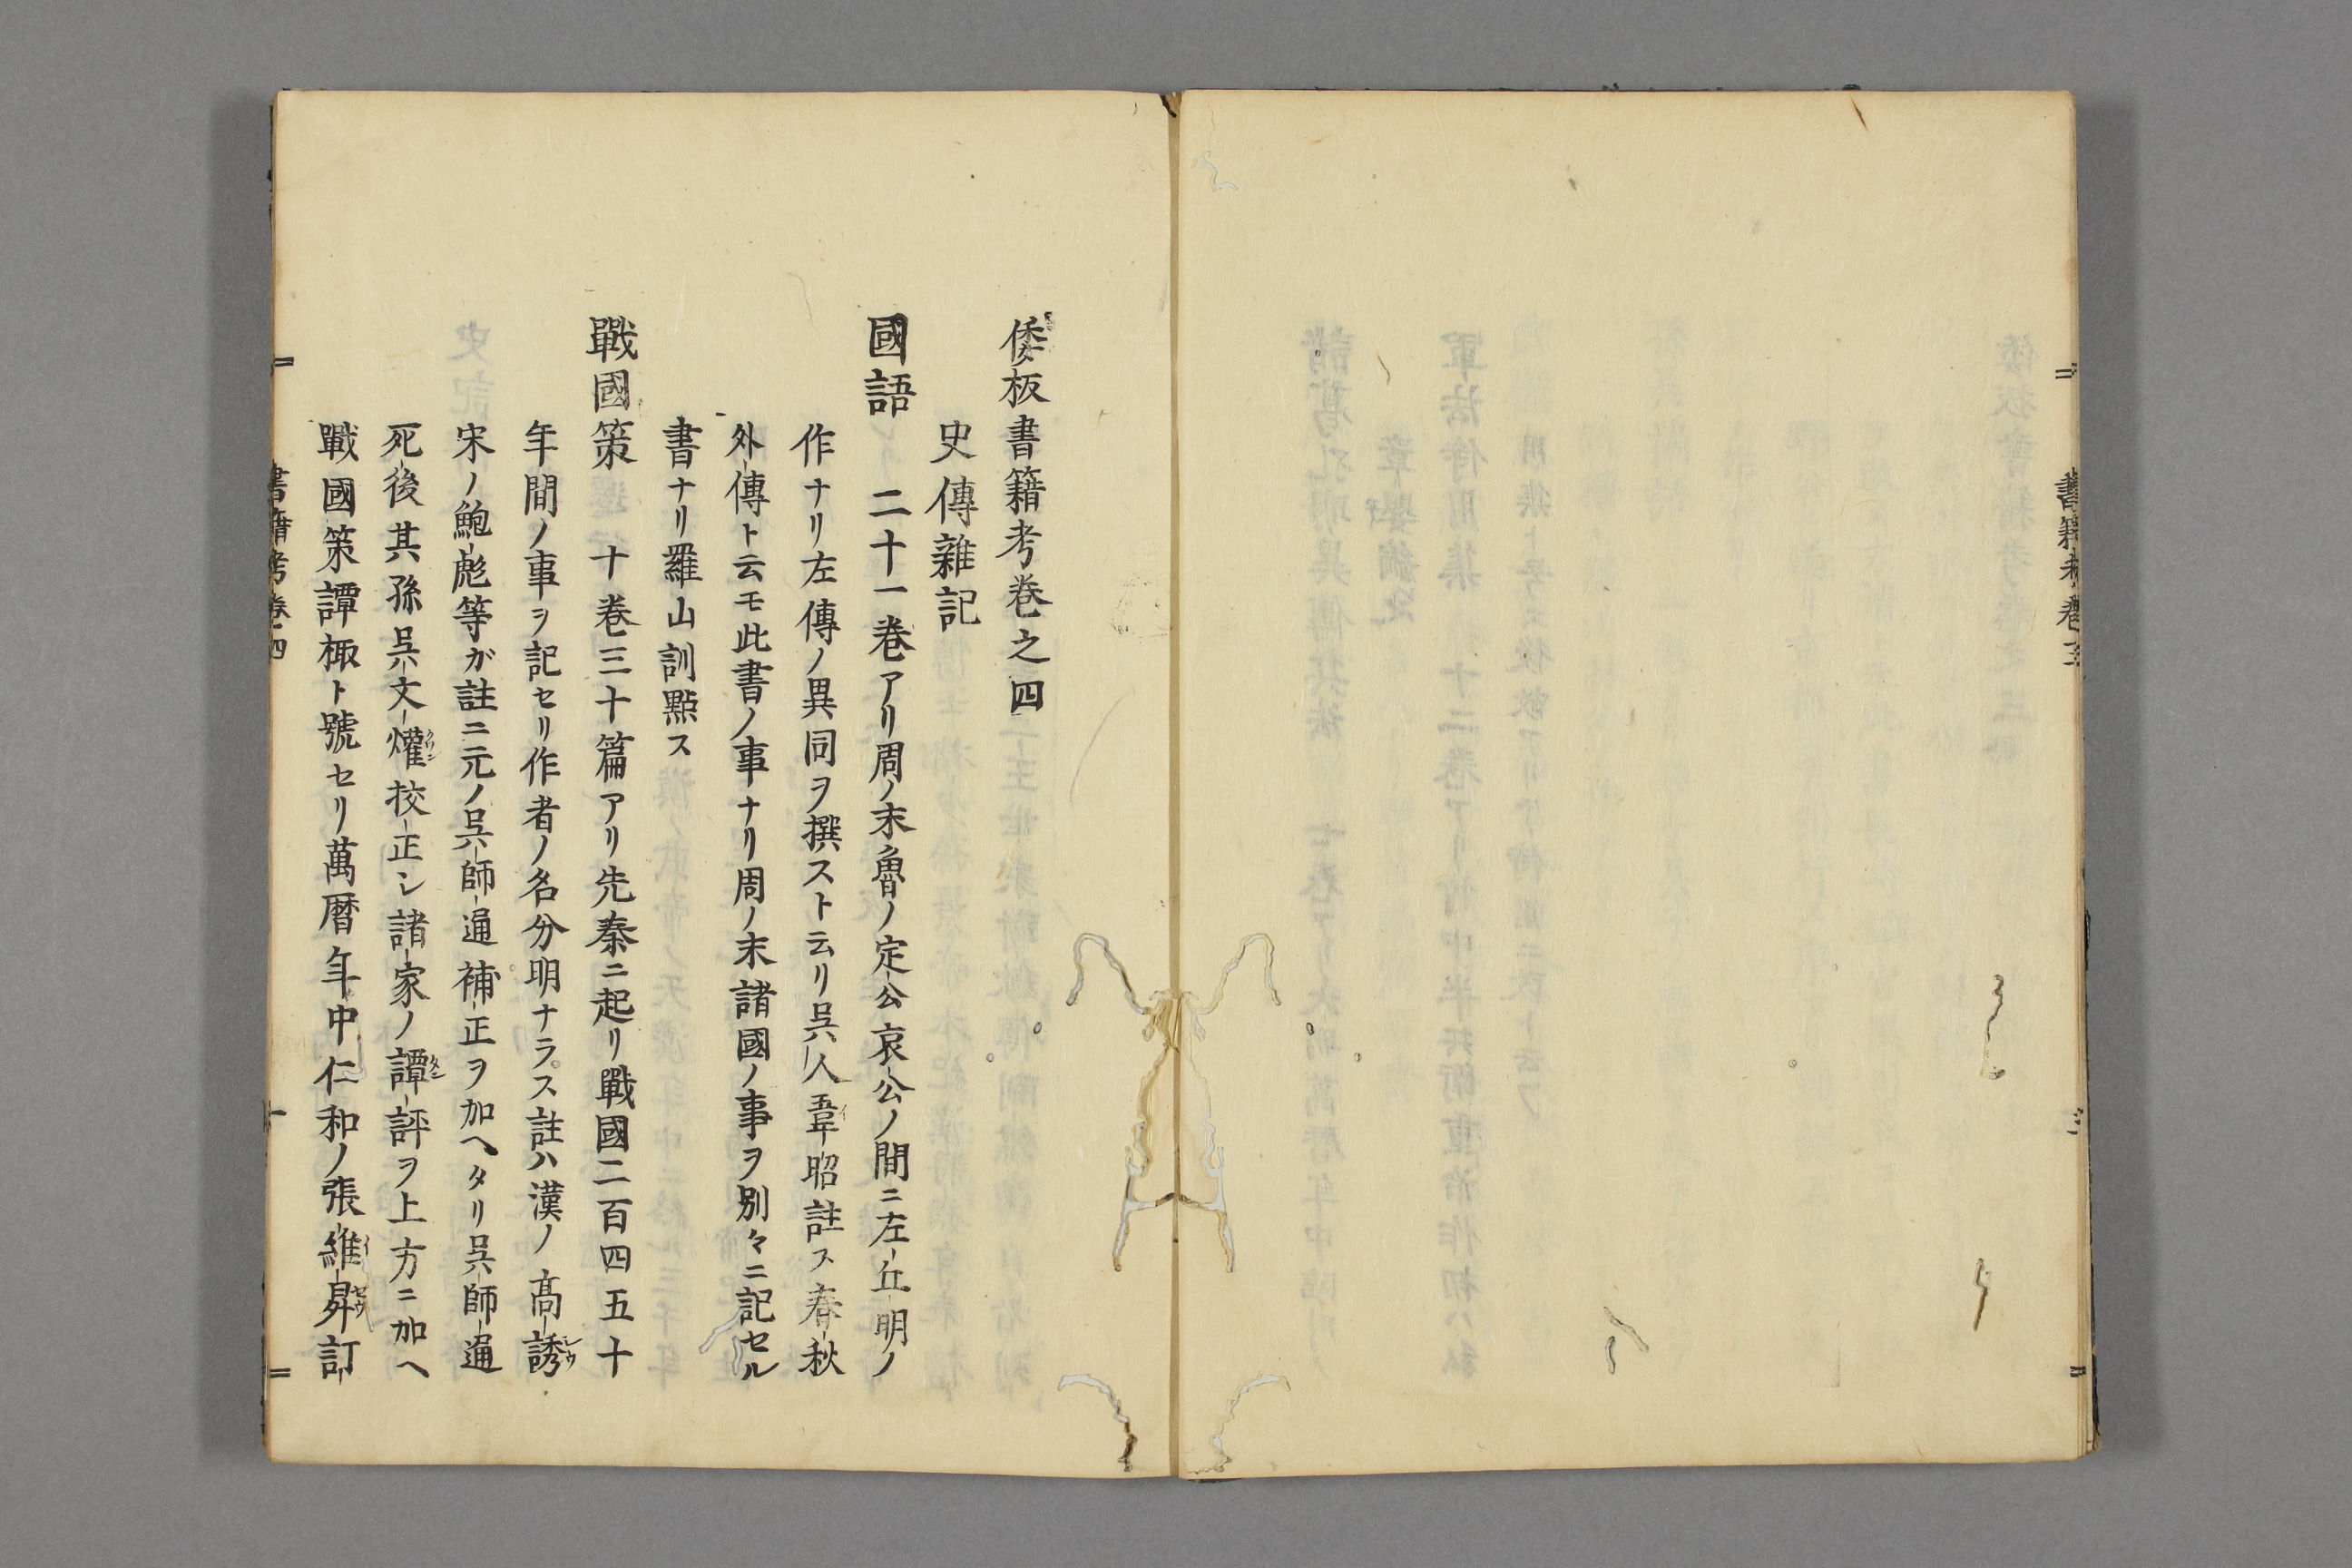 倭板書籍考卷之四
史傳雜記
國語　二十一卷アリ周ノ末魯ノ定公哀公ノ間ニ左丘明ノ
作ナリ左傳ノ異同ヲ撰ストト云リ呉人韋昭註ス春秋
外傳ト云モ此書ノ事ナリ周ノ末諸國ノ事ヲ別々ニ記セル
書ナリ羅山訓點ス
戰國策　十卷三十篇アリ先秦ニ起リ戰國二百四五十
年間ノ事ヲ記セリ作者ノ名分明ナラス註ハ漢ノ高誘
宋ノ鮑彪等が註ニ元ノ呉師道補正ヲ加ヘタリ呉師道
死後其孫呉文㸌校正シ諸家ノ譚評ヲ上方ニ加ヘ
戰國策譚棷ト號セリ萬曆年中仁和ノ張維昇訂
書籍考卷四
一
書籍考卷三